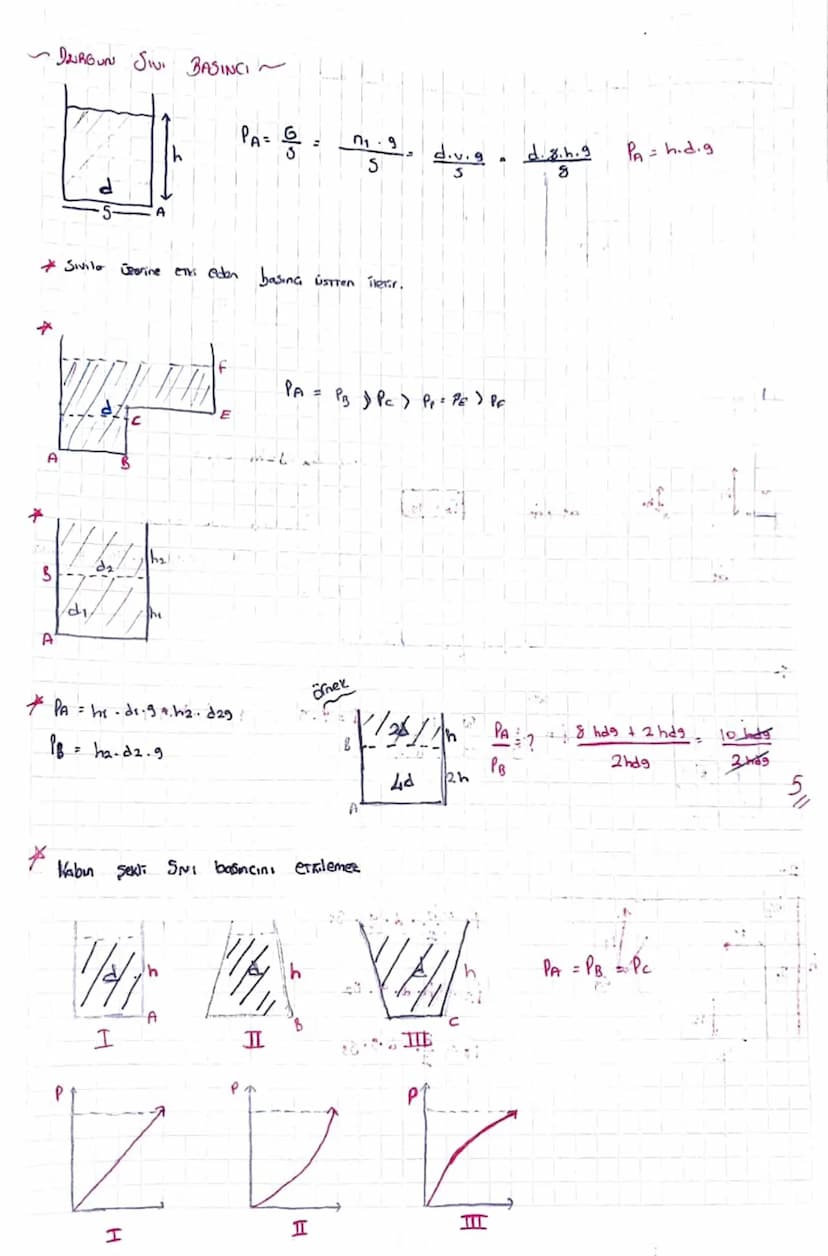 ~ DURGUN SIVI BASINCI ~
h
d
S
A
PA = G/S = m.g/S = d.v.g/S = d.s.h.g/s PA = h.d.g
* Sıvılar üzerine etki eden basıncı üstten iletir.
*
F
d
C
E
A
B
PA = PB > PC >
= PE > PF
*
d2
h2
B
d1
h1
A
* PA = h1.d1.g + h2.d2g
PB = h2.d2.g
örnek
2d
h
B
4d
2h
A
PA/PB = ? = 8hdg + 2hdg / 2hdg = 10hdg / 2hdg
5
* Kabın şekli sıvı basıncını etkilemez
d
h
A
I
d
h
B
II
d
h
C
III
PA = PB = PC
P
I
P
II
P
III